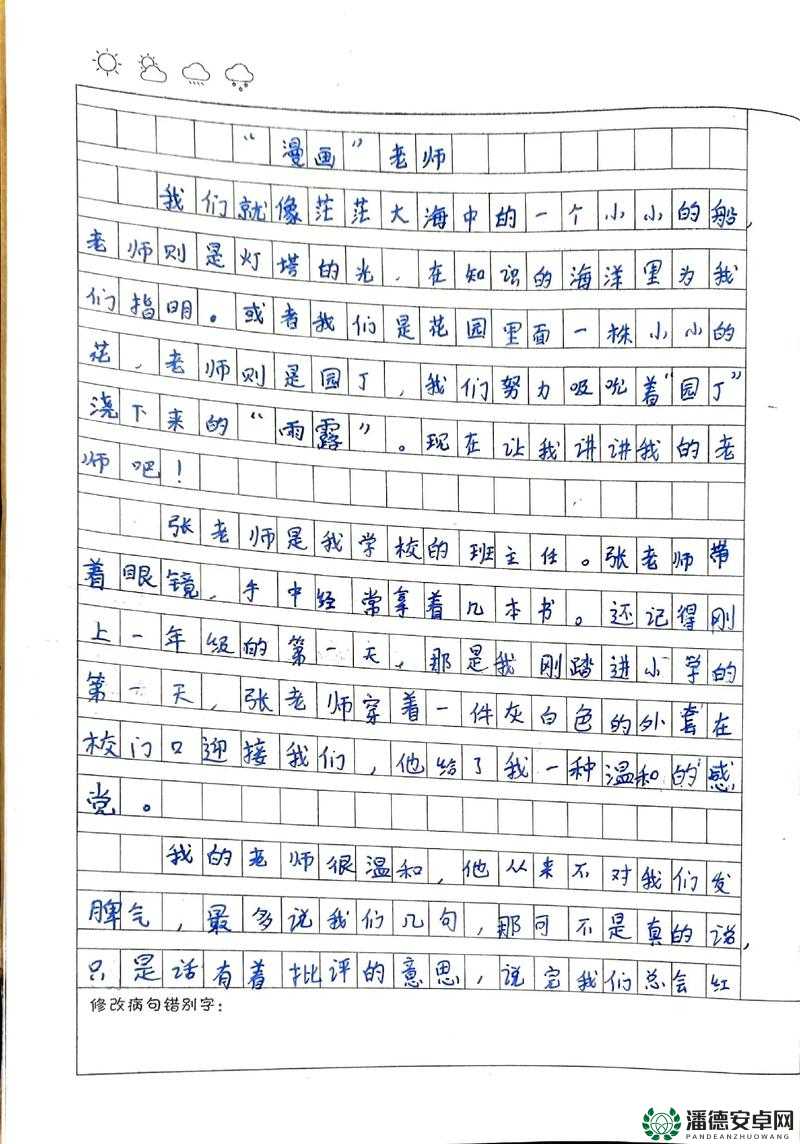 “漫画”老师
我们就像茫茫大海中的一个小小的船,
老师则是灯塔的光,在知识的海洋里为我
们指明。或者我们是花园里面一株小小的
花,老师则是园丁,我们努力吸吮着“园丁”
浇下来的“雨露”。现在让我讲讲我的老
师吧!
张老师是我学校的班主任。张老师带
着眼镜,手中经常拿着几本书。还记得刚
上一年级的第一天,那是我刚踏进小学的
第一天,张老师穿着一件灰白色的外套在
校门口迎接我们,他给了我一种温和的感
觉。
我的老师很温和,他从来不对我们发
脾气,最多说我们几句,那可不是真的说,
只是话有着批评的意思,说完我们总会红
修改病句错别字:
潘德安卓网
PANDEANZHUOWANG